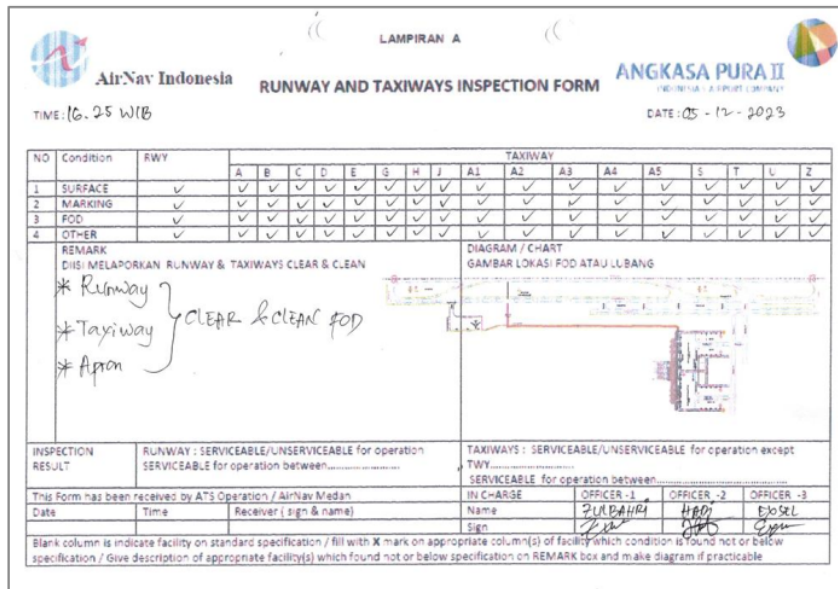 LAMPIRAN A
AirNav Indonesia
RUNWAY AND TAXIWAYS INSPECTION FORM
ANGKASA PURA II
INDONESIA'S AIRPORT COMPANY
TIME: 16.25 WIB
DATE: 05-12-2023
NO Condition RWY TAXIWAY
A B C D E G H J A1 A2 A3 A4 A5 S T U Z
1 SURFACE ✓ ✓ ✓ ✓ ✓ ✓ ✓ ✓ ✓ ✓ ✓ ✓ ✓ ✓ ✓ ✓ ✓ ✓
2 MARKING ✓ ✓ ✓ ✓ ✓ ✓ ✓ ✓ ✓ ✓ ✓ ✓ ✓ ✓ ✓ ✓ ✓ ✓
3 FOD ✓ ✓ ✓ ✓ ✓ ✓ ✓ ✓ ✓ ✓ ✓ ✓ ✓ ✓ ✓ ✓ ✓ ✓
4 OTHER ✓ ✓ ✓ ✓ ✓ ✓ ✓ ✓ ✓ ✓ ✓ ✓ ✓ ✓ ✓ ✓ ✓ ✓
REMARK
DIISI MELAPORKAN RUNWAY & TAXIWAYS CLEAR & CLEAN
* Runway
* Taxiway
* Apron
CLEAR & CLEAN FOD
DIAGRAM / CHART
GAMBAR LOKASI FOD ATAU LUBANG
INSPECTION
RESULT
RUNWAY : SERVICEABLE/UNSERVICEABLE for operation
SERVICEABLE for operation between........................
TAXIWAYS : SERVICEABLE/UNSERVICEABLE for operation except
TWY........................
SERVICEABLE for operation between........................
This Form has been received by ATS Operation / AirNav Medan
IN CHARGE OFFICER -1 OFFICER -2 OFFICER -3
Date Time Receiver ( sign & name)
Name ZULBAHRI HADI
Sign
Blank column is indicate facility on standard specification / fill with X mark on appropriate column(s) of facility which condition is found not or below
specification / Give description of appropriate facility(s) which found not or below specification on REMARK box and make diagram if practicable